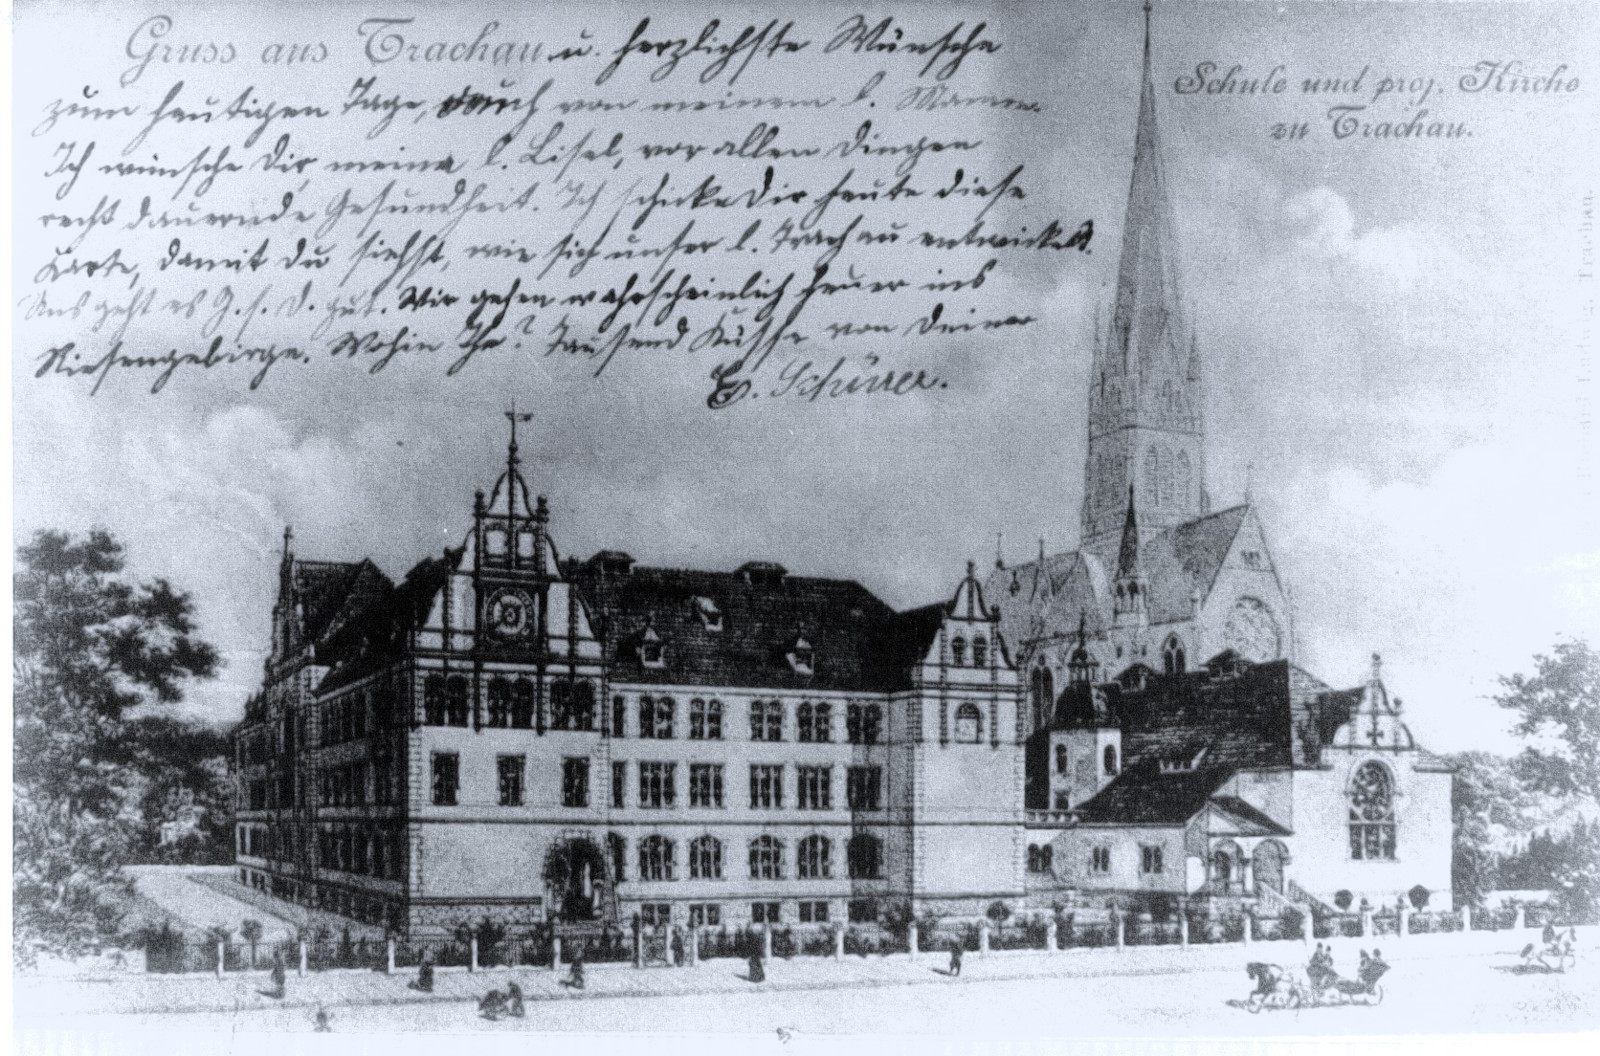 Gruss aus Trachau u. herzlichste Wünsche
zum heutigen Tage, auch von meinem l. Manne.
Ich wünsche Dir, meine l. Lisel, vor allen Dingen
recht dauernde Gesundheit. Ich schicke Dir heute diese
Karte, damit Du siehst, wie sich unser l. Trachau entwickelt.
Uns geht es G. s. D. gut. Wir gehen wahrscheinlich heuer ins
Riesengebirge. Wohin Ihr? Tausend Küsse von Deiner
E. Schürer.
Schule und proj. Kirche
zu Trachau.
Trachau.